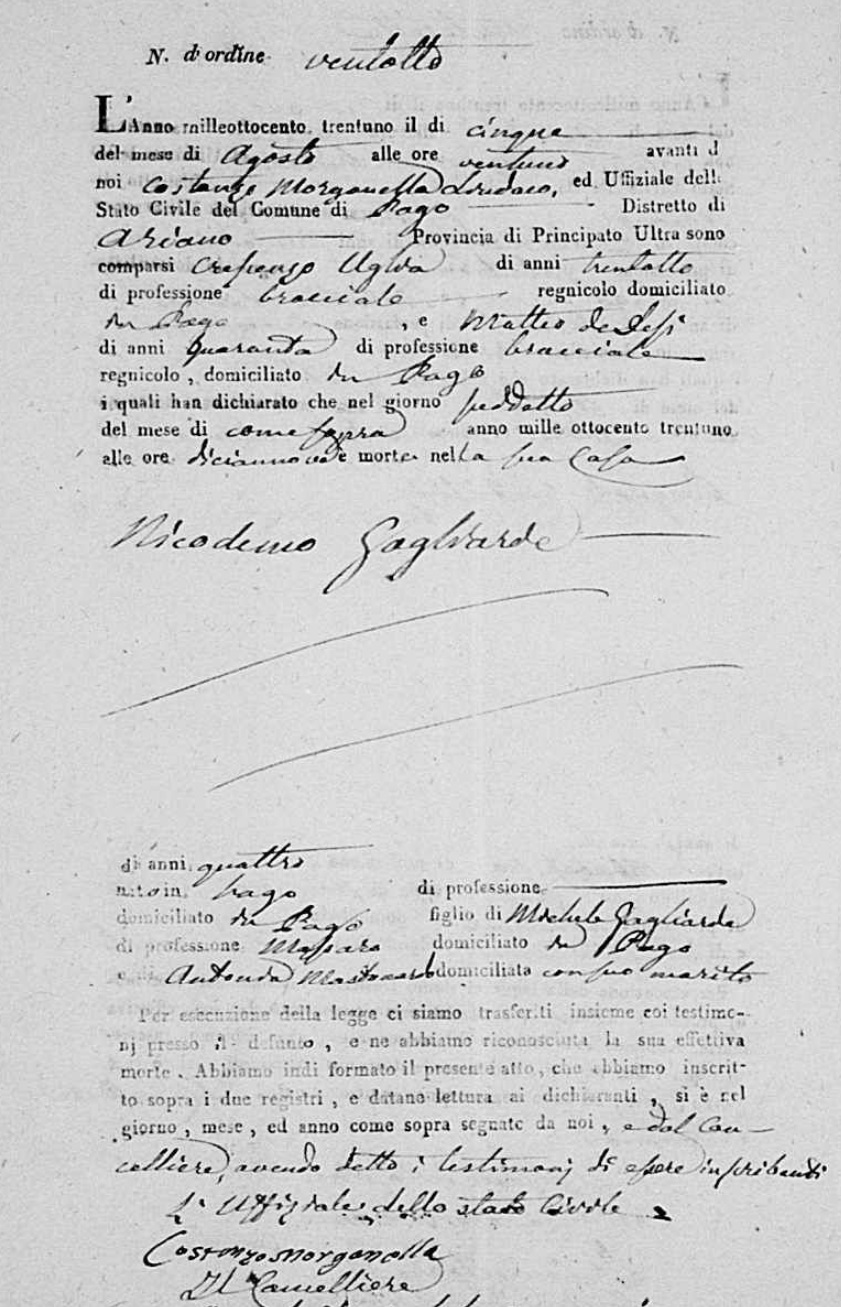 N. d'ordine ventotto
L'Anno milleottocento trentuno il di cinque
del mese di Agosto alle ore ventuno avanti d
noi Costanzo Morganella Sindaco, ed Uffiziale dell
Stato Civile del Comune di Pago Distretto di
Ariano Provincia di Principato Ultra sono
comparsi Crescenzo Uglia di anni trentotto
di professione bracciale regnicolo domiciliato
in Pago, e Matteo de
di anni quaranta di professione bracciale
regnicolo, domiciliato in Pago
i quali han dichiarato che nel giorno suddetto
del mese di come sopra anno mille ottocento trentuno
alle ore diciannove è morto nella sua Casa
Nicodemo Gagliarde
di anni quattro
nato in Pago di professione
domiciliato in Pago figlio di Michele Gagliarde
di professione Massaro domiciliato in Pago
e di Antonia domiciliata con suo marito
Per esecuzione della legge ci siamo trasferiti insieme coi testimo-
nj presso il defunto, e ne abbiamo riconosciuta la sua effettiva
morte. Abbiamo indi formato il presente atto, che abbiamo inscrit-
to sopra i due registri, e datane lettura ai dichiaranti, si è nel
giorno, mese, ed anno come sopra segnato da noi, e dal Can-
celliere, avendo detto i testimonj di essere inscribenti
L' Uffiziale dello stato Civile
Costanzo Morganella
Il Cancelliere